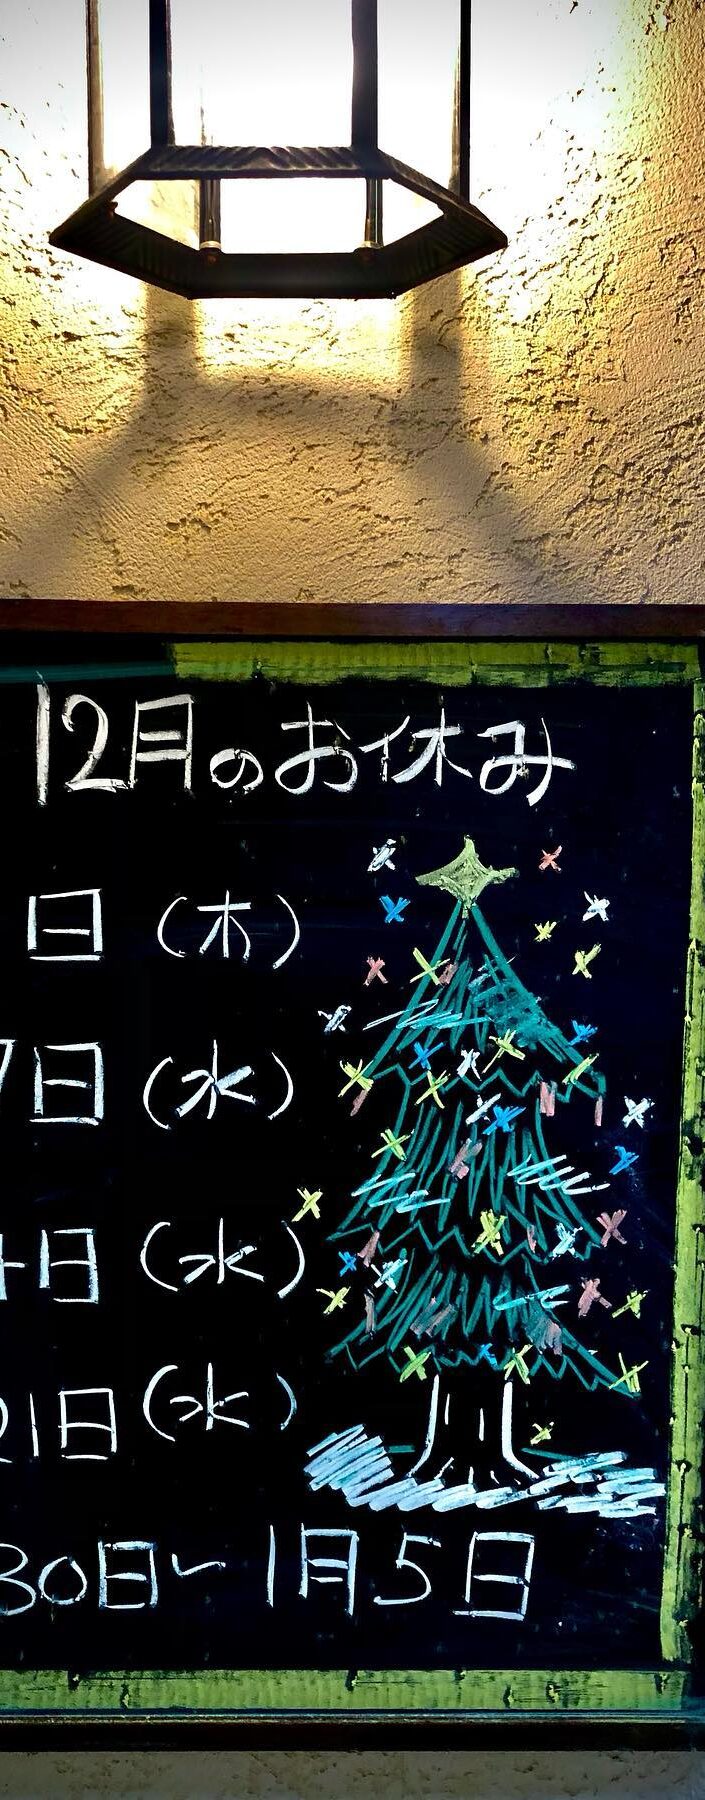 12月のお休み
日(木)
7日(水)
4日(水)
21日(水)
30日~1月5日